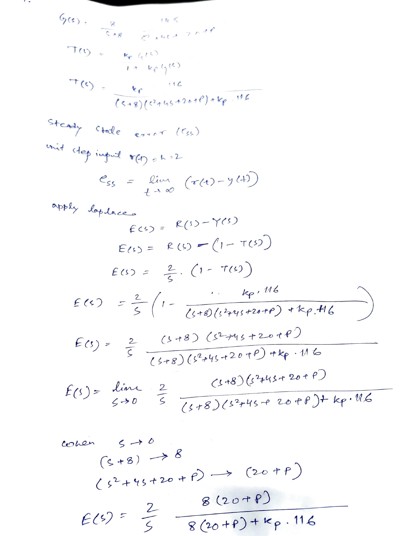 G(s) =
T(s) = kp G(s) / 1 + kp G(s)
T(s) = kp 116 / (s+8)(s²+4s+20+P)+kp 116
steady state error (ess)
unit step input r(t) = 2
ess = lim t→∞ (r(t) - y(t))
apply laplace
E(s) = R(s) - Y(s)
E(s) = R(s) - (1 - T(s))
E(s) = 2/s . (1 - T(s))
E(s) = 2/s (1 - kp.116 / (s+8)(s²+4s+20+P)+kp.116)
E(s) = 2/s (s+8)(s²+4s+20+P) / (s+8)(s²+4s+20+P)+kp.116
E(s) = lim s→0 2/s (s+8)(s²+4s+20+P) / (s+8)(s²+4s+20+P)+kp.116
when s→0
(s+8) → 8
(s²+4s+20+P) → (20+P)
E(s) = 2/s 8(20+P) / 8(20+P)+kp.116